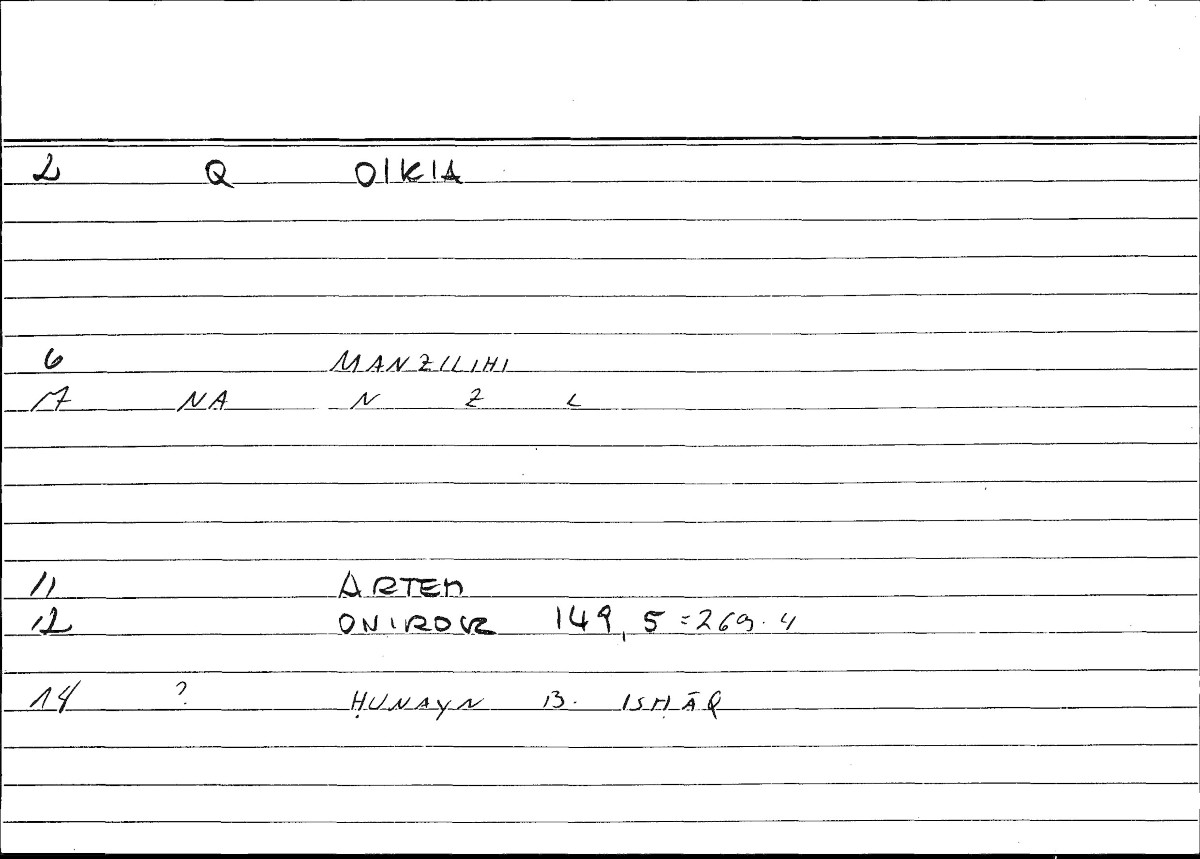 2 Q OIKIA
6 MANZILIHI
17 NA N Z L
11 ARTEM
12 ONIROCR 149,5 = 269.4
14 ? ḤUNAYN B. ISḤĀQ